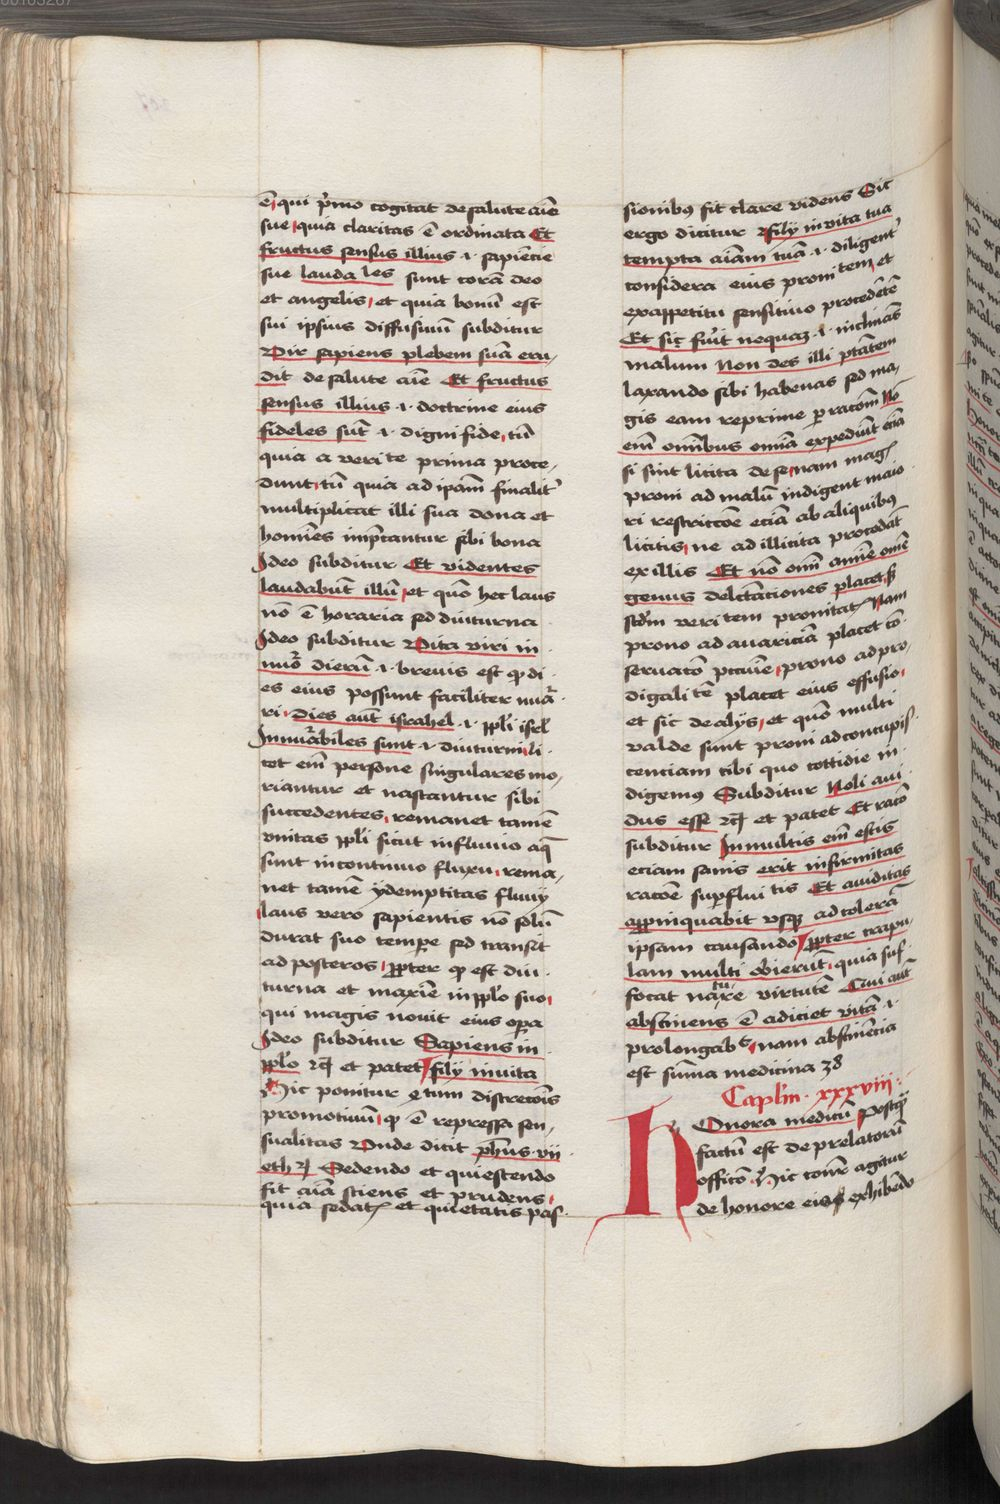 ē qui p̄mo cogitat de salute aīe
sue quia claritas ē ordinata Et
fructus sensus illius .i. sapiēcie
sue lauda les sunt corā deo
et angelis et quia bonū est
sui ipsius diffusiuū subditur
Vir sapiens plebem suā eru
dit de salute aīe Et fructus
sensus illius .i. doctrine eius
fideles sūt .i. digni fide tū
quia a veri te prima proce
dunt tū quia ad ip̄am finalit᷑
multiplicat illi sua dona et
homīes imp̄cantur sibi bona
Ideo subditur Et videntes
laudabūt illū et quō hec laus
nō ē horaria sed diuturna
Ideo subditur Vita viri in
nūo dierū .i. breuis est qꝫ di
es eius possunt faciliter nūa
ri Dies aūt israhel .i. ppl̄i isrl̄
Innūabiles sunt .i. diuturni li
cet em̄ persone singulares mo
riantur et nascantur sibi
succedentes remanet tamē
vnitas ppl̄i sicut in fluuio aq̄
sunt in continuo fluxu rema
net tamē ydemptitas fluuij
laus vero sapientis nō solū
durat suo tempe sed transit
ad posteros ꝓpter qꝫ est diu
turna et maxīe in ppl̄o suo
qui magis nouit eius opa
Ideo subditur Sapiens in
ppl̄o ⁊c̄ et patet fily in vita
Hic ponitur q̄tum discrecōis
promotiuū qꝫ ē repressa sen
sualitas Vnde dicit ph̄us vii
eth Sedendo et quiescendo
fit aīa sciens et prudens
quia sedat et quietatis pas
sionibꝰ fit clare videns Sic
ergo dicitur fily in vita tua
tempta aīam tuā .i. diligent᷑
considera eius proni tem et
ex appetitu sensitiuo procedētē
Et sic fūit nequaꝫ .i. inclinās
malum Non des illi ptātem
laxando sibi habenas sed ma
gis eam reprime p racōm Nō
em̄ omībus omīa expediūt ecīa
si sint licita de se nam mag
proni ad malū indigent maio
ri restriccōe eciā ab aliquibꝰ
licitis ne ad illicita procedāt
ex illis Et nō om̄i anīme om̄e
genus delctaciones placet sꝫ
scdm̄ veri tem pronitat Nam
prono ad auariciā placet cō
seruacō pecūie prono ad pro
digali tē placet eius effusio
et sic de alijs et quō multi
valde sunt proni ad concupis
cenciam cibi quo cottidie in
digemꝰ Subditur Noli aui
dus esse ⁊c̄ et patet Et racō
subditur In multis em̄ escis
eciam sanis erit infirmitas
racōe supflui tis Et auiditas
appinquabit vsqꝫ ad colerā
ipsam causando ꝓpter crapu
lam multi obierūt quia suf
focat nāre virtutē Qui aūt
abstinens ē adiciet vitā .i.
prolongabᵗ nam abstinēcia
est sūma medicina
Caplm̄ . xxxviii .
Honora medicū Postqꝫ
factū est de prelatorū
officō Hic cōnr agitur
de honore eis exhibēdo